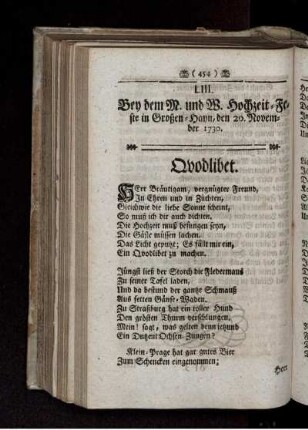 ( 454 )
LIII.
Bey dem M. und W. Hochzeit-Fe-
ste in Großen-Hayn, den 20. Novem-
ber 1730.
Qvodlibet.
HErr Bräutigam, vergnügter Freund,
In Ehren und in Züchten,
Gleichwie die liebe Sonne scheint,
So muß ich dir auch dichten.
Die Hochzeit muß besungen seyn,
Die Gäste müssen lachen.
Das Licht geputzt; Es fällt mir ein,
Ein Qvodlibet zu machen.
Jüngst ließ der Storch die Fledermaus
Zu seiner Tafel laden,
Und da bestund der gantze Schmauß
Aus fetten Gänse-Waden.
Zu Straßburg hat ein toller Hund
Den grösten Thurm verschlungen.
Mein! sagt, was gelten denn jetzund
Ein Dutzent Ochsen-Zungen?
Klein-Prage hat gar guten Bier
Zum Schencken eingenommen;
Herr